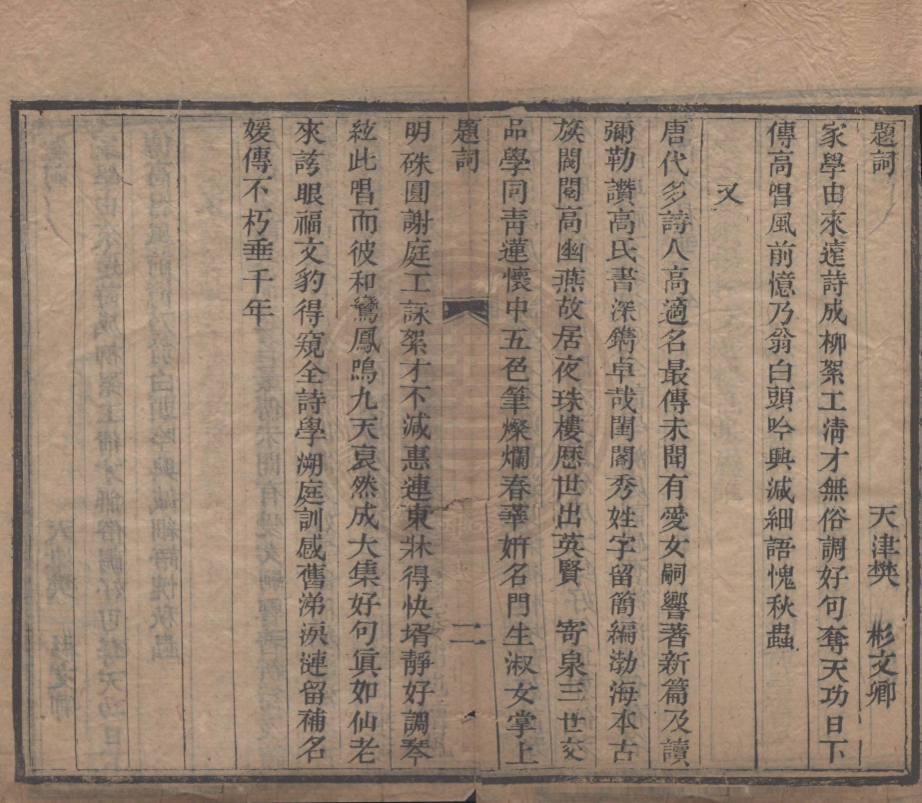 題詞 天津樊 彬文卿
家學由來遠詩成柳絮工清才無俗調好句奪天功日下
傳高唱風前憶乃翁白頭吟興減細語愧秋蟲
又
唐代多詩人高適名最傳未聞有愛女嗣響著新篇及讀
彌勒讚高氏書深鐫卓哉閨閣秀姓字留簡編渤海本古
族閥閱高幽燕故居夜珠樓歷世出英賢 寄泉三世交
品學同靑蓮懷中五色筆燦爛春華姸名門生淑女掌上
題詞 二
明珠圓謝庭工詠絮才不減惠連東牀得快壻靜好調琴
絃此唱而彼和鸞鳳鳴九天裒然成大集好句眞如仙老
來誇眼福文豹得窺全詩學溯庭訓感舊涕淚漣留補名
媛傳不朽垂千年